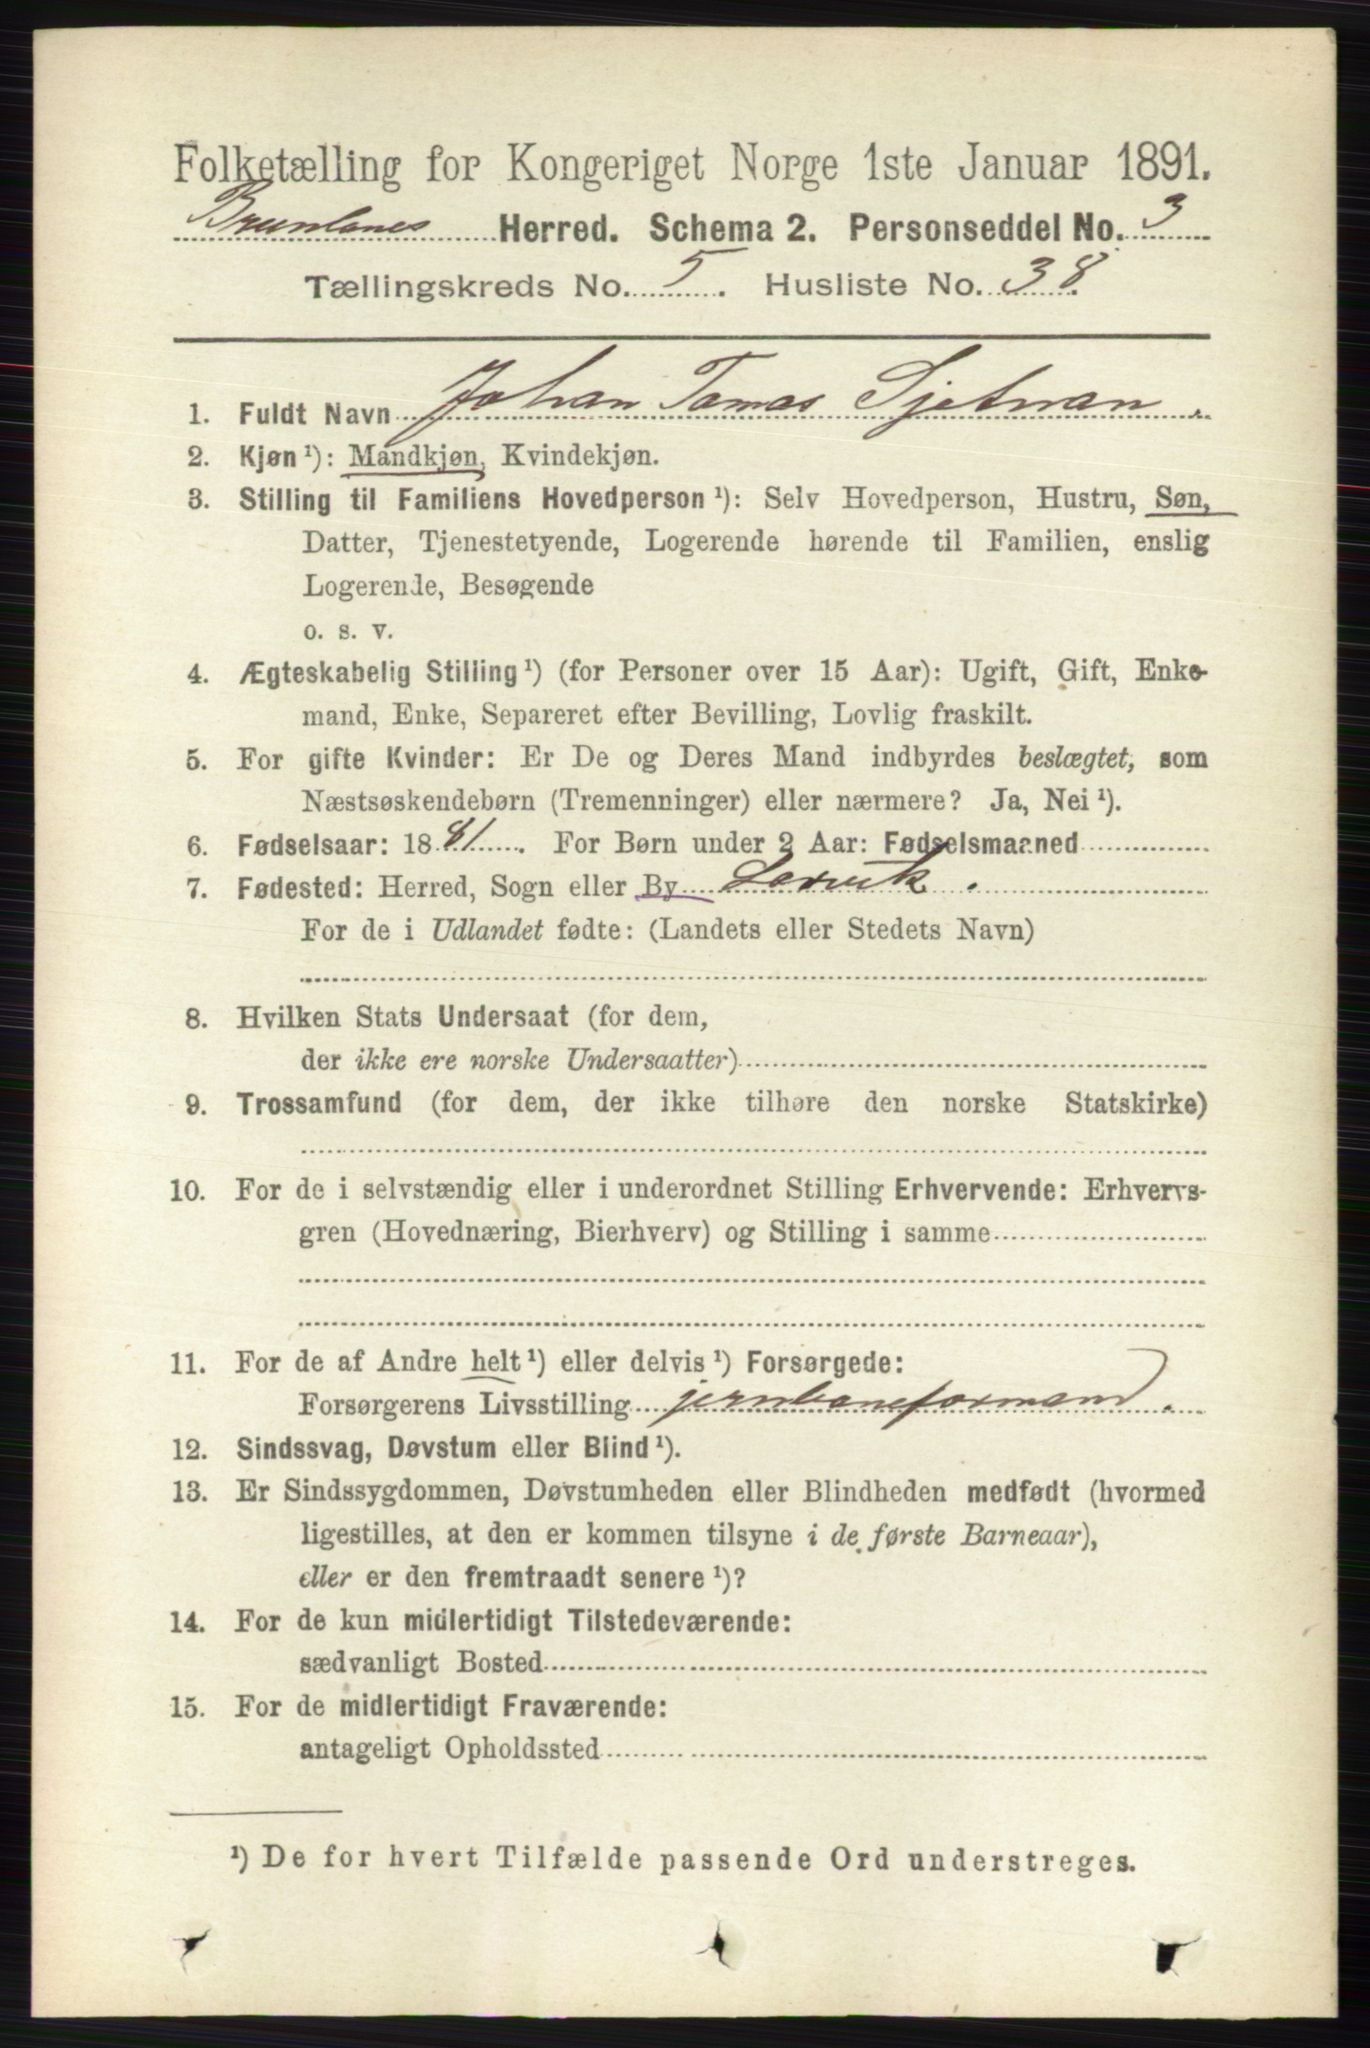 Folketælling for Kongeriget Norge 1ste Januar 1891.
Brunlanes Herred. Schema 2. Personseddel No. 3
Tællingskreds No. 5. Husliste No. 38.
1. Fuldt Navn Johan Tomas Sjøtman.
2. Kjøn ¹): Mandkjøn, Kvindekjøn.
3. Stilling til Familiens Hovedperson ¹): Selv Hovedperson, Hustru, Søn,
Datter, Tjenestetyende, Logerende hørende til Familien, enslig
Logerende, Besøgende
o. s. v.
4. Ægteskabelig Stilling ¹) (for Personer over 15 Aar): Ugift, Gift, Enke-
mand, Enke, Separeret efter Bevilling, Lovlig fraskilt.
5. For gifte Kvinder: Er De og Deres Mand indbyrdes beslægtet, som
Næstsøskendebørn (Tremenninger) eller nærmere? Ja, Nei ¹).
6. Fødselsaar: 1881. For Børn under 2 Aar: Fødselsmaaned
7. Fødested: Herred, Sogn eller By Larvik.
For de i Udlandet fødte: (Landets eller Stedets Navn)
8. Hvilken Stats Undersaat (for dem,
der ikke ere norske Undersaatter)
9. Trossamfund (for dem, der ikke tilhøre den norske Statskirke)
10. For de i selvstændig eller i underordnet Stilling Erhvervende: Erhvervs-
gren (Hovednæring, Bierhverv) og Stilling i samme
11. For de af Andre helt ¹) eller delvis ¹) Forsørgede:
Forsørgerens Livsstilling jernbaneformand.
12. Sindssvag, Døvstum eller Blind ¹).
13. Er Sindssygdommen, Døvstumheden eller Blindheden medfødt (hvormed
ligestilles, at den er kommen tilsyne i de første Barneaar),
eller er den fremtraadt senere ¹)?
14. For de kun midlertidigt Tilstedeværende:
sædvanligt Bosted
15. For de midlertidigt Fraværende:
antageligt Opholdssted
¹) De for hvert Tilfælde passende Ord understreges.